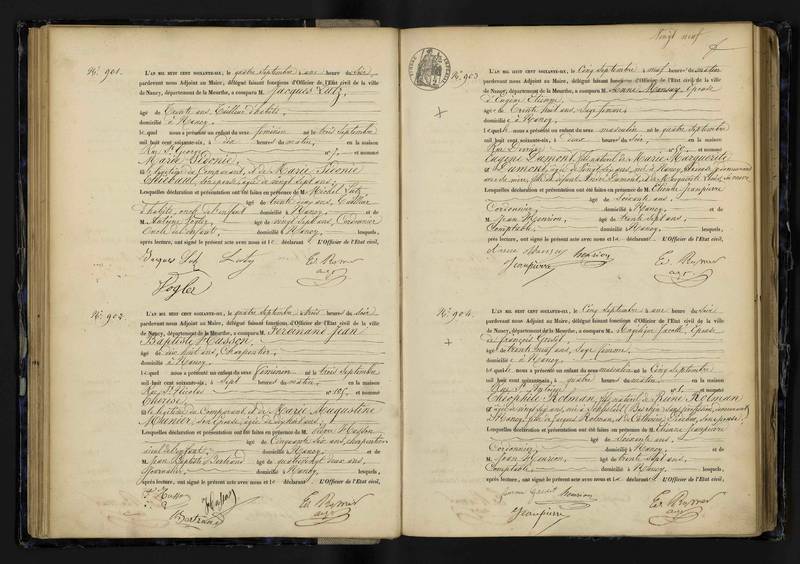 N° 901.
L'AN MIL HUIT CENT SOIXANTE-SIX, le quatre Septembre a une heure du Soir
pardevant nous Adjoint au Maire, délégué faisant fonctions d'Officier de l'Etat civil de la ville
de Nancy, département de la Meurthe, a comparu M. Jacques Lutz,
âgé de Trente ans, Tailleur d'habits,
domicilié à Nancy.
Lequel nous a présenté un enfant du sexe féminin né le trois Septembre
mil huit cent soixante-six, à dix heures du matin, en la maison
Rue St Georges n° et nommé
Marie Sidonie,
fille légitime du Comparant, & de Marie Sidonie
Thiébaud, son épouse, âgée de vingt sept ans;
Lesquelles déclaration et présentation ont été faites en présence de M. Michel Lutz,
âgé de trente cinq ans, Tailleur
d'habits, oncle de l'enfant domicilié à Nancy, et de
M. Antoine Fogler, âgé de vingt sept ans, Cordonnier
Oncle de l'enfant, domicilié à Nancy, lesquels,
après lecture, ont signé le présent acte avec nous et le déclarant. L'Officier de l'Etat civil,
Jacques Lutz Lutz Ed. Rymer
Fogler
N° 902.
L'AN MIL HUIT CENT SOIXANTE-SIX, le quatre Septembre à trois heures du Soir
pardevant nous Adjoint au Maire, délégué faisant fonctions d'Officier de l'Etat civil de la ville
de Nancy, département de la Meurthe, a comparu M. Ferdinand Jean
Baptiste Husson,
âgé de dix huit ans, Charpentier,
domicilié à Nancy.
Lequel nous a présenté un enfant du sexe féminin né le trois Septembre
mil huit cent soixante-six, à Sept heures du matin, en la maison
Rue St Nicolas n° et nommé
Thérèse,
fille légitime du Comparant, & de Marie Augustine
Munier, son épouse, âgée de dix huit ans;
Lesquelles déclaration et présentation ont été faites en présence de M. Husson,
âgé de Cinquante six ans, charpentier
aïeul de l'enfant, domicilié à Nancy, et de
M. Jean Baptiste Bertrand âgé de quatre vingt deux ans,
Journalier, domicilié à Nancy, lesquels,
après lecture, ont signé le présent acte avec nous et le déclarant. L'Officier de l'Etat civil,
Husson Husson Ed. Rymer
Bertrand
Vingt neuf
N° 903
L'AN MIL HUIT CENT SOIXANTE-SIX, le Cinq Septembre à neuf heures du matin
pardevant nous Adjoint au Maire, délégué faisant fonctions d'Officier de l'Etat civil de la ville
de Nancy, département de la Meurthe, a comparu M. Anne Mansuy, épouse
d'Eugène Etienne,
âgée de Trente huit ans, Sage femme,
domiciliée à Nancy.
Lequel nous a présenté un enfant du sexe masculin né le quatre Septembre
mil huit cent soixante-six, à onze heures du Soir, en la maison
Rue n° et nommé
Eugène Dument, fils naturel de Marie Marguerite
Dument, âgée de vingt six ans, née à Nancy,
Lesquelles déclaration et présentation ont été faites en présence de M. Etienne Jeanpierre
âgé de Soixante ans,
Cordonnier, domicilié à Nancy, et de
M. Jean Henrion, âgé de trente sept ans,
Comptable, domicilié à Nancy, lesquels,
après lecture, ont signé le présent acte avec nous et le déclarant. L'Officier de l'Etat civil,
Anne Mansuy Henrion Ed. Rymer
Jeanpierre
N° 904.
L'AN MIL HUIT CENT SOIXANTE-SIX, le Cinq Septembre à une heure du Soir
pardevant nous Adjoint au Maire, délégué faisant fonctions d'Officier de l'Etat civil de la ville
de Nancy, département de la Meurthe, a comparu M. Angélique Jacotte, épouse
de François Gentil,
âgée de trente neuf ans, Sage femme,
domiciliée à Nancy.
Lequel nous a présenté un enfant du sexe masculin né le Cinq Septembre
mil huit cent soixante-six, à quatre heures du matin, en la maison
Rue n° et nommé
Théophile Rolman, fils naturel de Reine Rolman
âgée de vingt six ans, née à
à Nancy, fille de Jacques Rolman, & de Catherine
Lesquelles déclaration et présentation ont été faites en présence de M. Etienne Jeanpierre
âgé de Soixante ans,
Cordonnier, domicilié à Nancy, et de
M. Jean Henrion, âgé de trente sept ans,
Comptable, domicilié à Nancy, lesquels,
après lecture, ont signé le présent acte avec nous et le déclarant. L'Officier de l'Etat civil,
Henrion Ed. Rymer
Jeanpierre